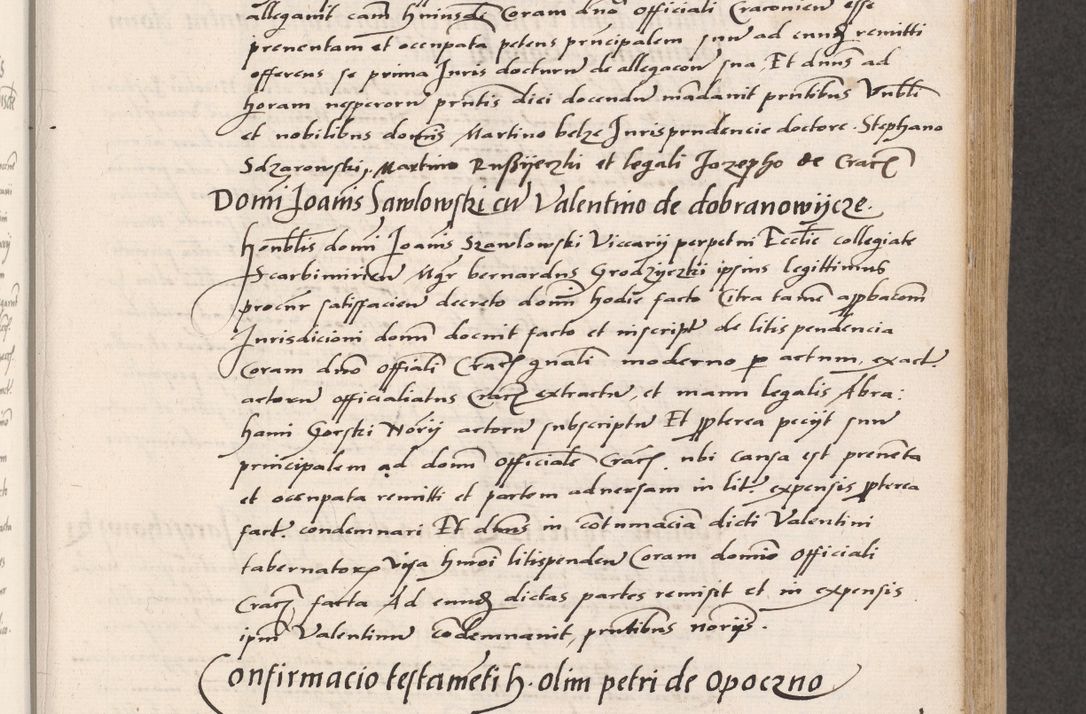 allegavit cam huiusde Coram dno Officiali Cracovien esse
preventam et occupata petens principalem suu ad eunq remitti
offerens se prima Iuris docturu de allegacoe sua, Et dnus ad
horam vesperoru pntis diei docendu madavit pntibus Vnbli
et nobilibus domis Martino belze Iurisprudencie doctore Stephano
Sdzarowski, Martino Rußijeczki et legali Jozepho de Crac
Domi Joanis Sawlowski cu Valentino de dobranowijcze.
honblis domi Joanis Szawlowski Viccarij perpetui Ecclie collegiate
Scarbimirien Mgr bernardus Grodzyczki ipsius legittimus
procur satisfacien decreto domi hodie facto Citra tame approbatom
Iurisdicioni domi docuit facto et inscript de litis pendencia
Coram dno Offiali Crac gnali moderno p actum, exact
actoru officialiatus Crac extractu, et manu legalis Abra:
hami Gorski Norij actoru subscriptu Et ppterea peciyt suu
principalem ad domi Officiale Crac ubi causa est preventa
et occupata remitti et partem adversam in lit expensis ppterea
fact condemnari Et dnus in cotumacia dicti Valentini
tabernatorp visa hmoi litispenden Coram domio Officiali
Crac facta Ad eunq dictas partes remisit et in expensis
ipm Valentinu codemnavit, pntibus norijs.
Confirmacio testameti h. olim petri de Opoczno